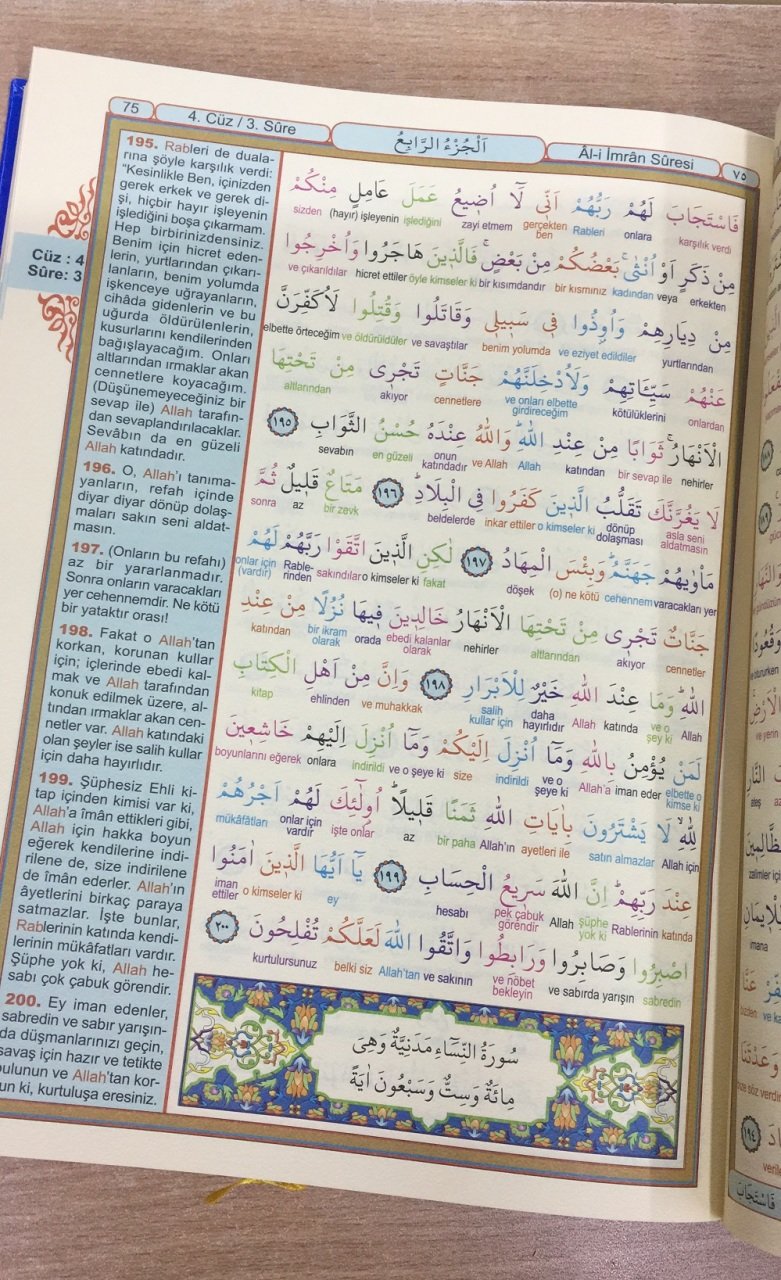 75
4. Cüz / 3. Sûre
اَلْجُزْءُ الرَّابِعُ
Âl-i İmrân Sûresi
٧٥
Cüz : 4
Sûre: 3
195. Rableri de duala-
rına şöyle karşılık verdi:
"Kesinlikle Ben, içinizden
gerek erkek ve gerek di-
şi, hiçbir hayır işleyenin
işlediğini boşa çıkarmam.
Hep birbirinizdensiniz.
Benim için hicret eden-
lerin, yurtlarından çıkarı-
lanların, benim yolumda
işkenceye uğrayanların,
cihâda gidenlerin ve bu
uğurda öldürülenlerin,
kusurlarını kendilerinden
bağışlayacağım. Onları
altlarından ırmaklar akan
cennetlere koyacağım.
(Düşünemeyeceğiniz bir
sevap ile) Allah tarafın-
dan sevaplandırılacaklar.
Sevâbın da en güzeli
Allah katındadır.
196. O, Allah'ı tanıma-
yanların, refah içinde
diyar diyar dönüp dolaş-
maları sakın seni aldat-
masın.
197. (Onların bu refahı)
az bir yararlanmadır.
Sonra onların varacakları
yer cehennemdir. Ne kötü
bir yataktır orası!
198. Fakat o Allah'tan
korkan, korunan kullar
için; içlerinde ebedi kal-
mak ve Allah tarafından
konuk edilmek üzere, al-
tından ırmaklar akan cen-
netler var. Allah katındaki
olan şeyler ise salih kullar
için daha hayırlıdır.
199. Şüphesiz Ehli ki-
tap içinden kimisi var ki,
Allah'a îmân ettikleri gibi,
Allah için hakka boyun
eğerek kendilerine indi-
rilene de, size indirilene
de îmân ederler. Allah'ın
âyetlerini birkaç paraya
satmazlar. İşte bunlar,
Rablerinin katında kendi-
lerinin mükâfatları vardır.
Şüphe yok ki, Allah he-
sabı çok çabuk görendir.
200. Ey iman edenler,
sabredin ve sabır yarışın-
da düşmanlarınızı geçin,
savaş için hazır ve tetikte
bulunun ve Allah'tan kor-
un ki, kurtuluşa eresiniz.
فَاسْتَجَابَ لَهُمْ رَبُّهُمْ اَنّ۪ي لَٓا اُض۪يعُ عَمَلَ عَامِلٍ مِنْكُمْ
karşılık verdi onlara Rableri gerçekten ben zayi etmem işlediğini (hayır) işleyenin sizden
مِنْ ذَكَرٍ اَوْ اُنْثٰىۚ بَعْضُكُمْ مِنْ بَعْضٍۚ فَالَّذ۪ينَ هَاجَرُوا وَاُخْرِجُوا
erkekten veya kadından bir kısmınız bir kısımdandır öyle kimseler ki hicret ettiler ve çıkarıldılar
مِنْ دِيَارِهِمْ وَاُوذُوا ف۪ي سَب۪يل۪ي وَقَاتَلُوا وَقُتِلُوا لَاُكَفِّرَنَّ
yurtlarından ve eziyet edildiler benim yolumda ve savaştılar ve öldürüldüler elbette örteceğim
عَنْهُمْ سَيِّـَٔاتِهِمْ وَلَاُدْخِلَنَّهُمْ جَنَّاتٍ تَجْر۪ي مِنْ تَحْتِهَا
onlardan kötülüklerini ve onları elbette girdireceğim cennetlere akıyor altlarından
الْاَنْهَارُۚ ثَوَابًا مِنْ عِنْدِ اللّٰهِۜ وَاللّٰهُ عِنْدَهُ حُسْنُ الثَّوَابِ ١٩٥
nehirler bir sevap ile katından Allah ve Allah onun katındadır en güzeli sevabın
لَا يَغُرَّنَّكَ تَقَلُّبُ الَّذ۪ينَ كَفَرُوا فِي الْبِلَادِۜ ١٩٦ مَتَاعٌ قَل۪يلٌ ثُمَّ
asla seni aldatmasın dönüp dolaşması o kimseler ki inkar ettiler beldelerde bir zevk az sonra
مَأْوٰيهُمْ جَهَنَّمُۜ وَبِئْسَ الْمِهَادُ ١٩٧ لٰكِنِ الَّذ۪ينَ اتَّقَوْا رَبَّهُمْ لَهُمْ
varacakları yer cehennem (o) ne kötü döşek fakat o kimseler ki sakındılar Rable-rinden onlar için (vardır)
جَنَّاتٌ تَجْر۪ي مِنْ تَحْتِهَا الْاَنْهَارُ خَالِد۪ينَ ف۪يهَا نُزُلًا مِنْ عِنْدِ
cennetler akıyor altlarından nehirler ebedi kalanlar olarak orada bir ikram olarak katından
اللّٰهِۜ وَمَا عِنْدَ اللّٰهِ خَيْرٌ لِلْاَبْرَارِ ١٩٨ وَاِنَّ مِنْ اَهْلِ الْكِتَابِ
Allah ve o şey ki katında Allah daha hayırlıdır salih kullar için ve muhakkak ehlinden kitap
لَمَنْ يُؤْمِنُ بِاللّٰهِ وَمَٓا اُنْزِلَ اِلَيْكُمْ وَمَٓا اُنْزِلَ اِلَيْهِمْ خَاشِع۪ينَ
elbette o kimse ki iman eder Allah'a ve o şeye ki indirildi size ve o şeye ki indirildi onlara boyunlarını eğerek
لِلّٰهِۙ لَا يَشْتَرُونَ بِاٰيَاتِ اللّٰهِ ثَمَنًا قَل۪يلًاۜ اُو۬لٰٓئِكَ لَهُمْ اَجْرُهُمْ
Allah için satın almazlar ayetleri ile Allah'ın bir paha az işte onlar onlar için vardır mükâfatları
عِنْدَ رَبِّهِمْۜ اِنَّ اللّٰهَ سَر۪يعُ الْحِسَابِ ١٩٩ يَٓا اَيُّهَا الَّذ۪ينَ اٰمَنُوا
katında Rablerinin şüphe yok ki Allah pek çabuk görendir hesabı ey o kimseler ki iman ettiler
اصْبِرُوا وَصَابِرُوا وَرَابِطُوا وَاتَّقُوا اللّٰهَ لَعَلَّكُمْ تُفْلِحُونَ ٢٠٠
sabredin ve sabırda yarışın ve nöbet bekleyin ve sakının Allah'tan belki siz kurtulursunuz
سُورَةُ النِّسَٓاءِ مَدَنِيَّةٌ وَهِيَ
مِائَةٌ وَسِتٌّ وَسَبْعُونَ اٰيَةً
فَاسْتَجَابَ